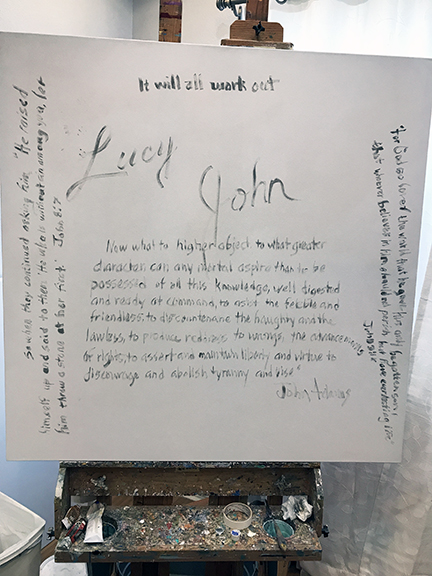 It will all work out
Lucy
John
Now what to higher object to what greater
character can any mortal aspire than to be
possessed of all this knowledge, well digested
and ready at command, to asist the feeble and
friendless, to discountenane the haughty and the
lawless, to produce redress to wrongs, the
of rights, to assert and maintain liberty and virtue to
discourage and abolish tyranny and vise"
John Adams
So when they continued asking him, "He raised
himself up and said to them "He who is without sin among you, let
him throw a stone at her first." John 8:7
"For God so loved the world that he gave his only begotten son
that whoever believes in him should not perish but have everlasting life"
John 3:16